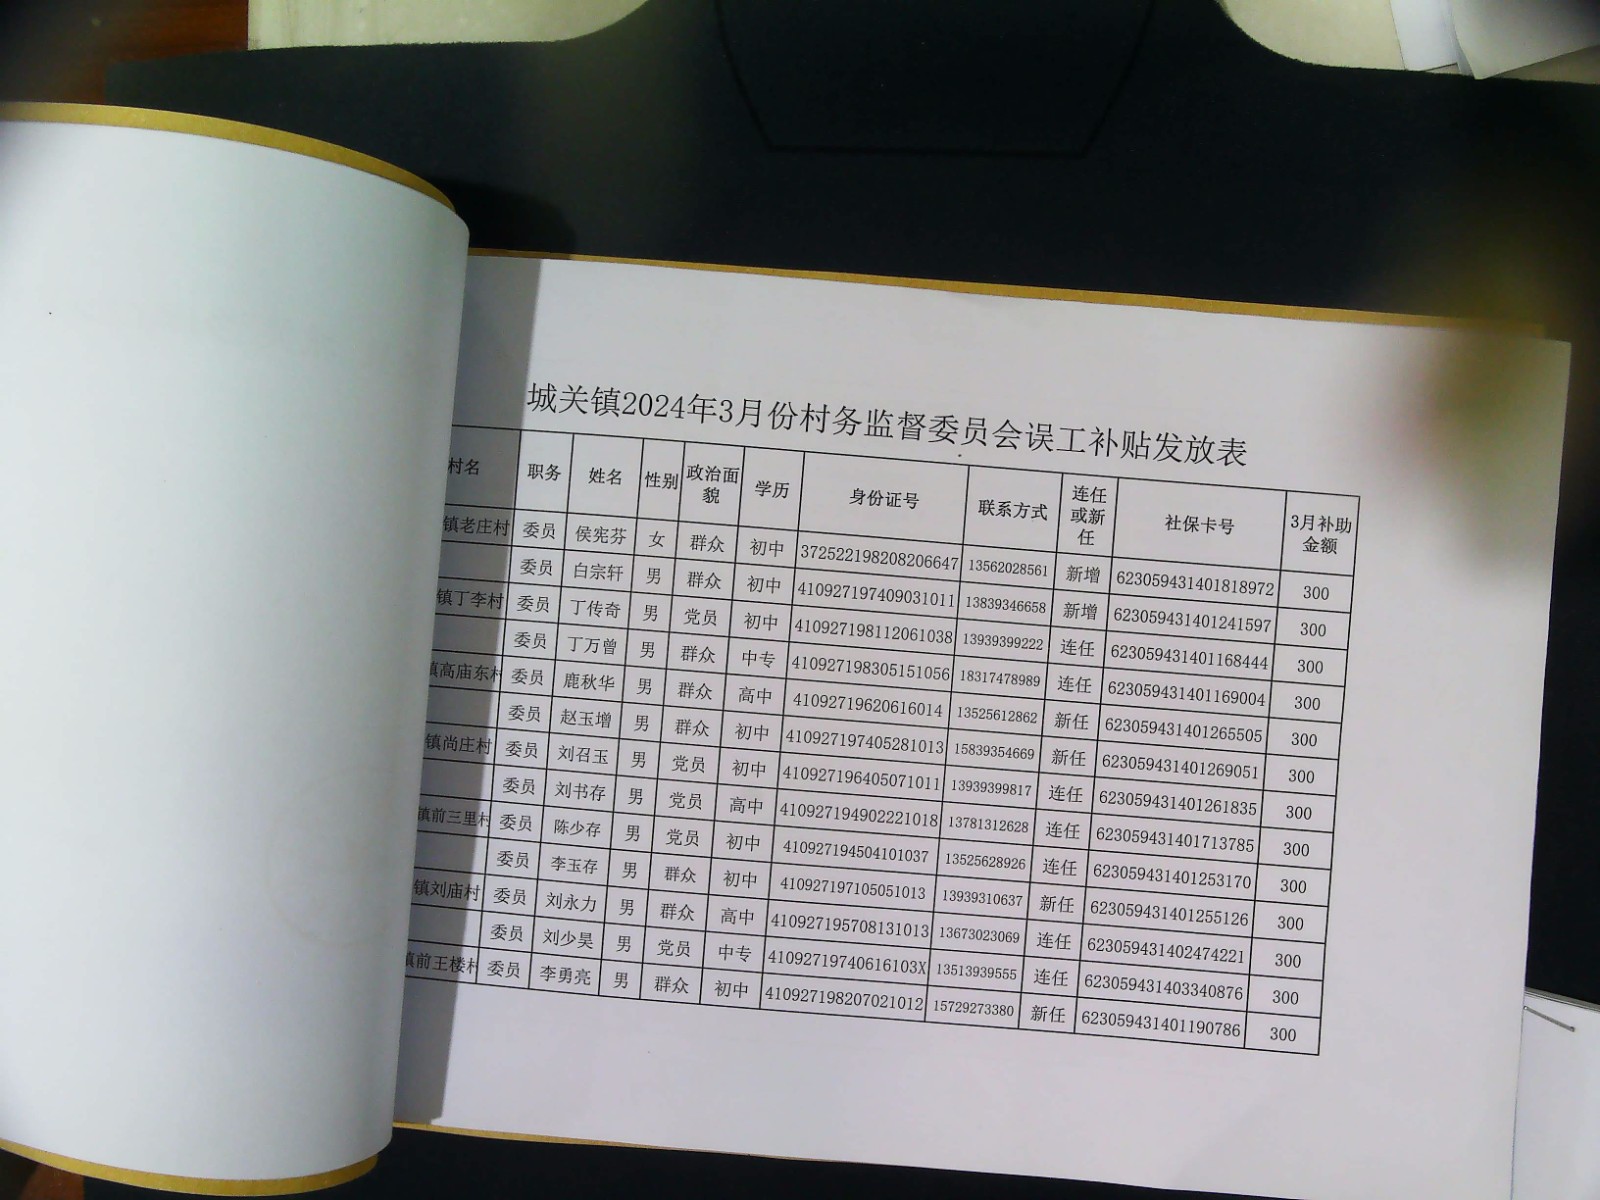 城关镇2024年3月份村务监督委员会误工补贴发放表
村名 职务 姓名 性别 政治面貌 学历 身份证号 联系方式 连任或新任 社保卡号 3月补助金额
镇老庄村 委员 侯宪芬 女 群众 初中 372522198208206647 13562028561 新增 623059431401818972 300
委员 白宗轩 男 群众 初中 410927197409031011 13839346658 新增 623059431401241597 300
镇丁李村 委员 丁传奇 男 党员 初中 410927198112061038 13939399222 连任 623059431401168444 300
委员 丁万曾 男 群众 中专 410927198305151056 18317478989 连任 623059431401169004 300
镇高庙东村 委员 鹿秋华 男 群众 高中 41092719620616014 13525612862 新任 623059431401265505 300
委员 赵玉增 男 群众 初中 410927197405281013 15839354669 新任 623059431401269051 300
镇尚庄村 委员 刘召玉 男 党员 初中 410927196405071011 13939399817 连任 623059431401261835 300
委员 刘书存 男 党员 高中 410927194902221018 13781312628 连任 623059431401713785 300
镇前三里村 委员 陈少存 男 党员 初中 410927194504101037 13525628926 连任 623059431401253170 300
委员 李玉存 男 群众 初中 410927197105051013 13939310637 新任 623059431401255126 300
镇刘庙村 委员 刘永力 男 群众 高中 410927195708131013 13673023069 连任 623059431402474221 300
委员 刘少昊 男 党员 中专 41092719740616103X 13513939555 连任 623059431403340876 300
镇前王楼村 委员 李勇亮 男 群众 初中 410927198207021012 15729273380 新任 623059431401190786 300